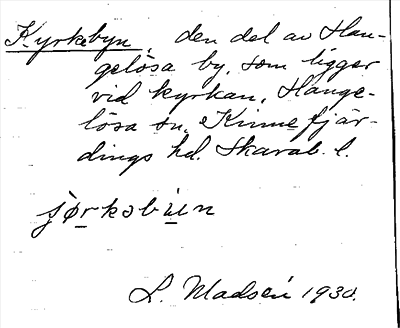 Kyrkebyn, den del av Han-
gelösa by, som ligger
vid kyrkan, Hange-
lösa sn, Kinne fjär-
dings hd. Skarab. l.
L. Madsén 1930.